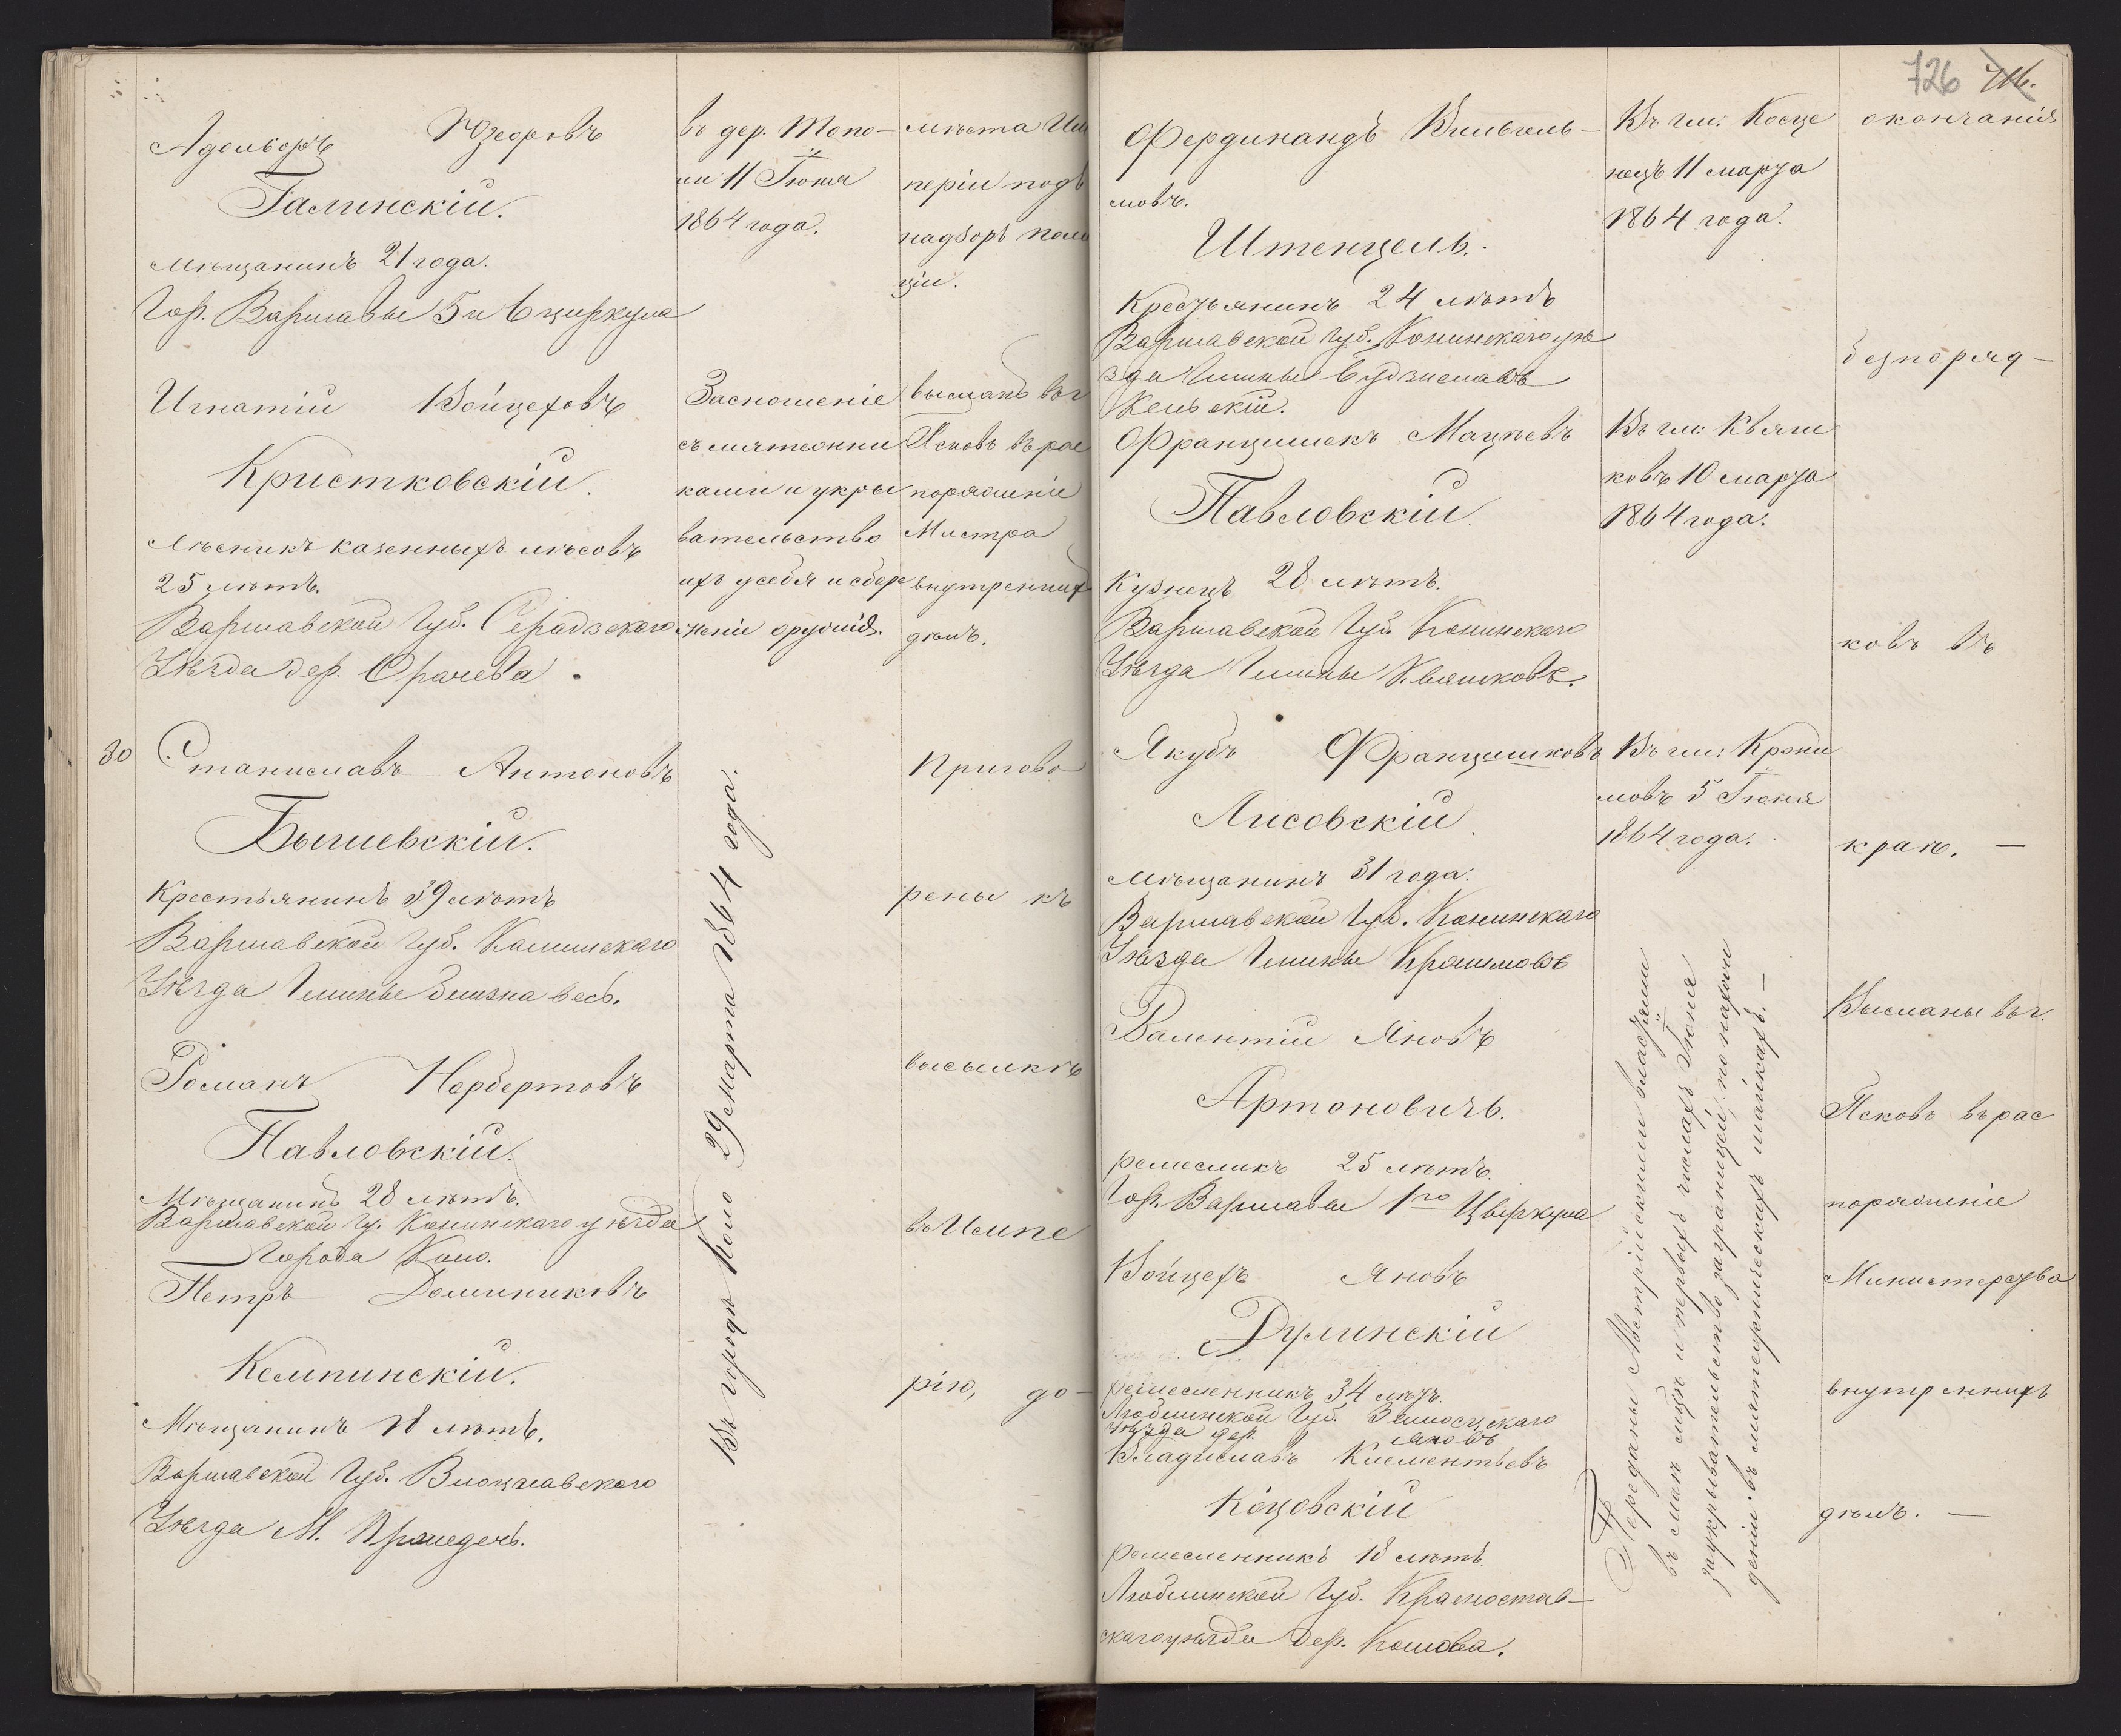 Адольфъ Юзефовъ
Галинскій.
Мѣщанинъ 21 года.
Гор. Варшавы 5 и 6 циркула
въ дер. Топо-
ли 11 Іюня
1864 года.
мѣста Им
періи подъ
надзоръ поли
ціи.
Игнатій Войцеховъ
Кристковскій.
Лѣсникъ казенныхъ лѣсовъ
25 лѣтъ.
Варшавской Губ. Серадзскаго
Уѣзда дер. Орачева
Засношеніе
съ мятежни
ками и укры
вательство
ихъ у себя и сбере
женіе оружія.
высланъ въ г
Псковъ въ рас
поряженіе
Мистра
внутреннихъ
дѣлъ.
80
Станиславъ Антоновъ
Бышевскій.
Крестьянинъ 39 лѣтъ
Варшавской Губ. Калишскаго
Уѣзда Гмины Близна весь.
Романъ Норбертовъ
Павловскій.
Мѣщанинъ 28 лѣтъ.
Варшавской Гу. Конинскаго уѣзда
Города Коло.
Петръ Доминиковъ
Кемпинскій.
Мѣщанинъ 18 лѣтъ.
Варшавской Губ. Влоцлавскаго
Уѣзда М. Пршедечь.
Въ городѣ Коло 29 Марта 1864 года.
Пригово
рены къ
высылкѣ
въ Импе
рію, до-
726 716.
Фердинандъ Вильгель-
мовъ.
Штенцель.
Крестьянинъ 24 лѣтъ
Варшавской Губ. Конинскаго уѣ
зда Гмины Будзиславъ
Кельскій.
Въ гм: Косце
лецъ 11 марта
1864 года.
окончанія
безпоряд-
Францишекъ Мацѣевъ
Павловскій.
Кузнецъ 28 лѣтъ.
Варшавской Губ. Конинскаго
Уѣзда Гмины Квяшковъ.
Въ гм: Квяш
ковъ 10 марта
1864 года.
ковъ въ
Якубъ Францишковъ
Лисовскій.
Мѣщанинъ 31 года.
Варшавской Губ. Конинскаго
Уѣзда Гмины Кранимовъ
Въ гм: Крани
мовъ 5 Іюня
1864 года.
краѣ. —
Валентій Яновъ
Артоновичъ.
ремесликъ 25 лѣтъ.
Гор. Варшавы 1го Циркула
Войцехъ Яновъ
Дулинскій
ремесленникъ 34 лѣтъ.
Люблинской Губ. Замосцскаго
Уѣзда дер. Яновъ
Владиславъ Клементьевъ
Коцовскій
ремесленникъ 18 лѣтъ.
Люблинской Губ. Красностав-
скаго уѣзда дер. Кошова.
Переданы Австрійскими властями
въ маѣ мцѣ и первыхъ числахъ Іюня
за укрывательство заграницей, по нахож
деніи въ мятежническихъ шайкахъ. —
Высланы въ г.
Псковъ въ рас
поряженіе
Министерства
внутреннихъ
дѣлъ. —